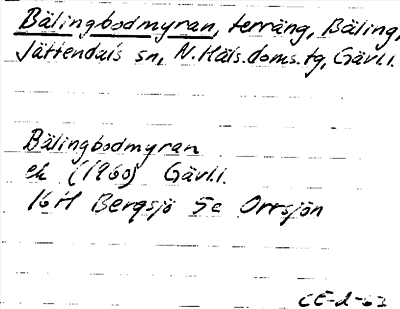 Bälingbodmyran, terräng, Bäling,
Jättendals sn, N.Häls.doms.tg, Gävl.l.
Bälingbodmyran
ek (1960) Gävl.l.
16H Bergsjö 5e Orrsjön